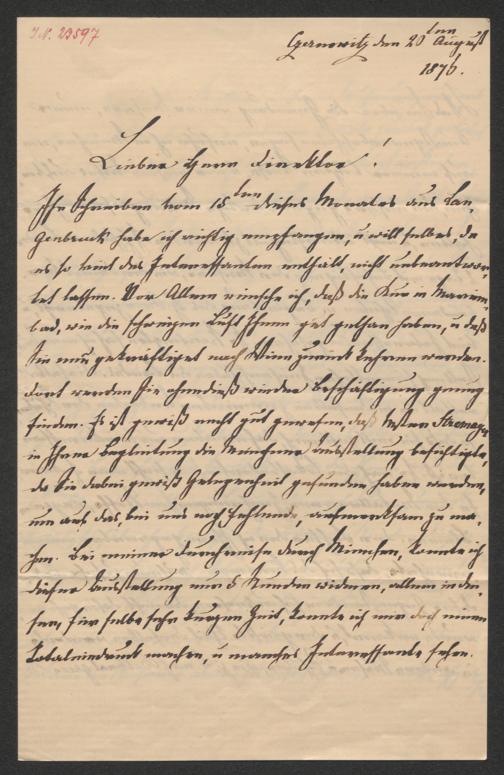 I.N. 23597
Czernowitz den 20ten August
1876.
Lieber Herr Direktor!
Ihr Schreiben vom 15ten dieses Monates aus Lan¬
genbruck habe ich richtig empfangen, u will selbes, da
es so viel des Interessanten enthält, nicht unbeantwor¬
tet lassen. Vor Allem wünsche ich, daß die Kur in Marien¬
bad, wie die Luft Ihnen gut gethan haben, u daß
Sie neu gekräftiget nach Wien zurück kehren werden.
Dort werden Sie ohnedieß wieder Beschäftigung genug
finden. Es ist gewiß recht gut gewesen, daß Stremayr
in Ihrer Begleitung die Münchner Ausstellung besichtigte,
da Sie dabei gewiß Gelegenheit gefunden haben werden,
um auf das, bei uns noch Fehlende, aufmerksam zu ma¬
chen. Bei meiner Durchreise durch München, konnte ich
dieser Ausstellung nur 5 Stunden widmen, allein indes¬
sen, für selbe sehr kurzen Zeit, konnte ich mir doch einen
Totaleindruck machen, u manches Interessante sehen.